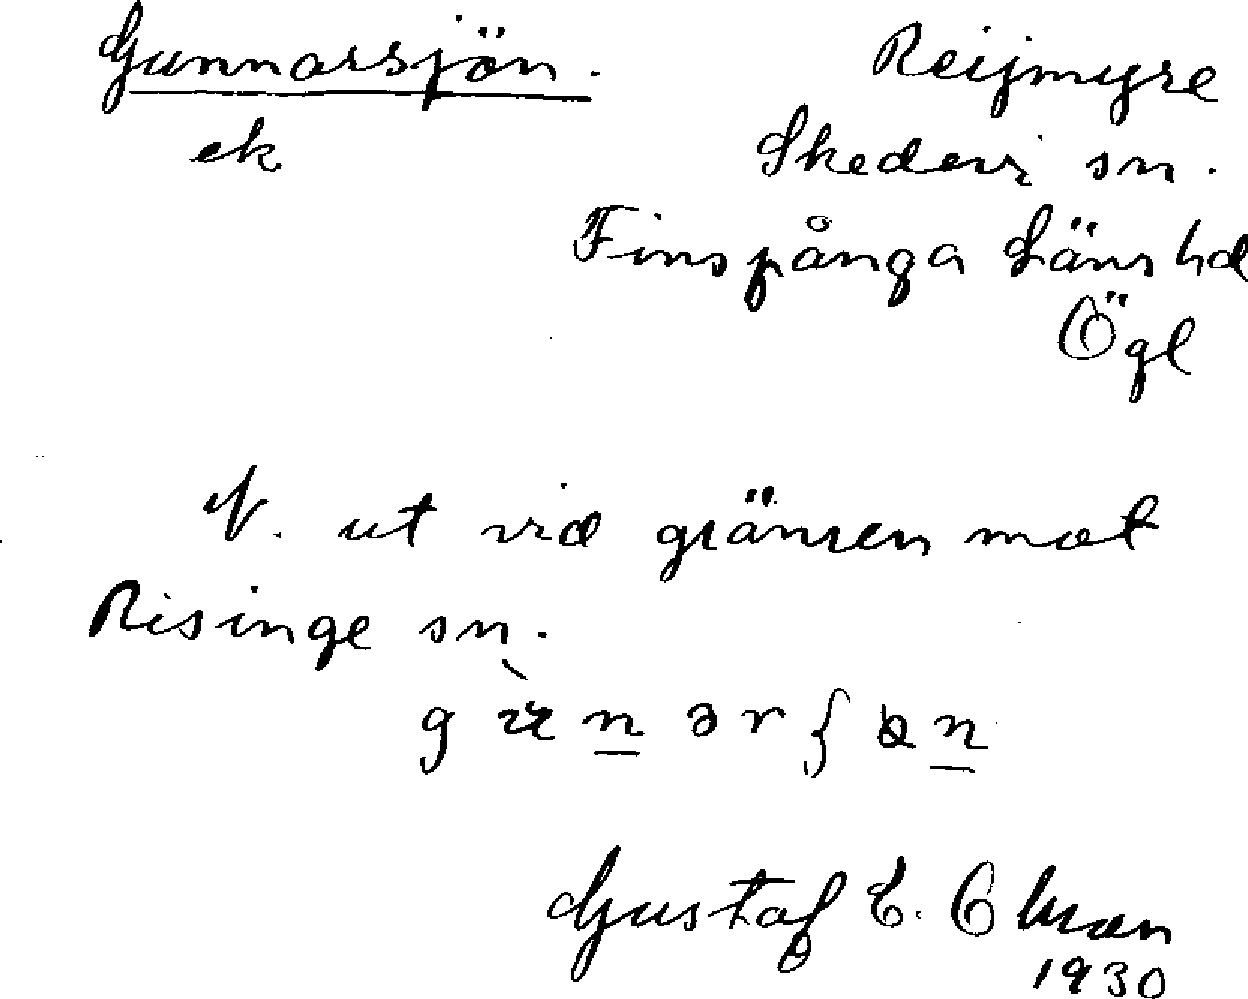 Gunnarsjön.
Reijmyre
ek
Skedevi sn.
Finspånga Läns hd
Ögl
N. ut vid gränsen mot
Risinge sn.
Gustaf E. Ohman
1930